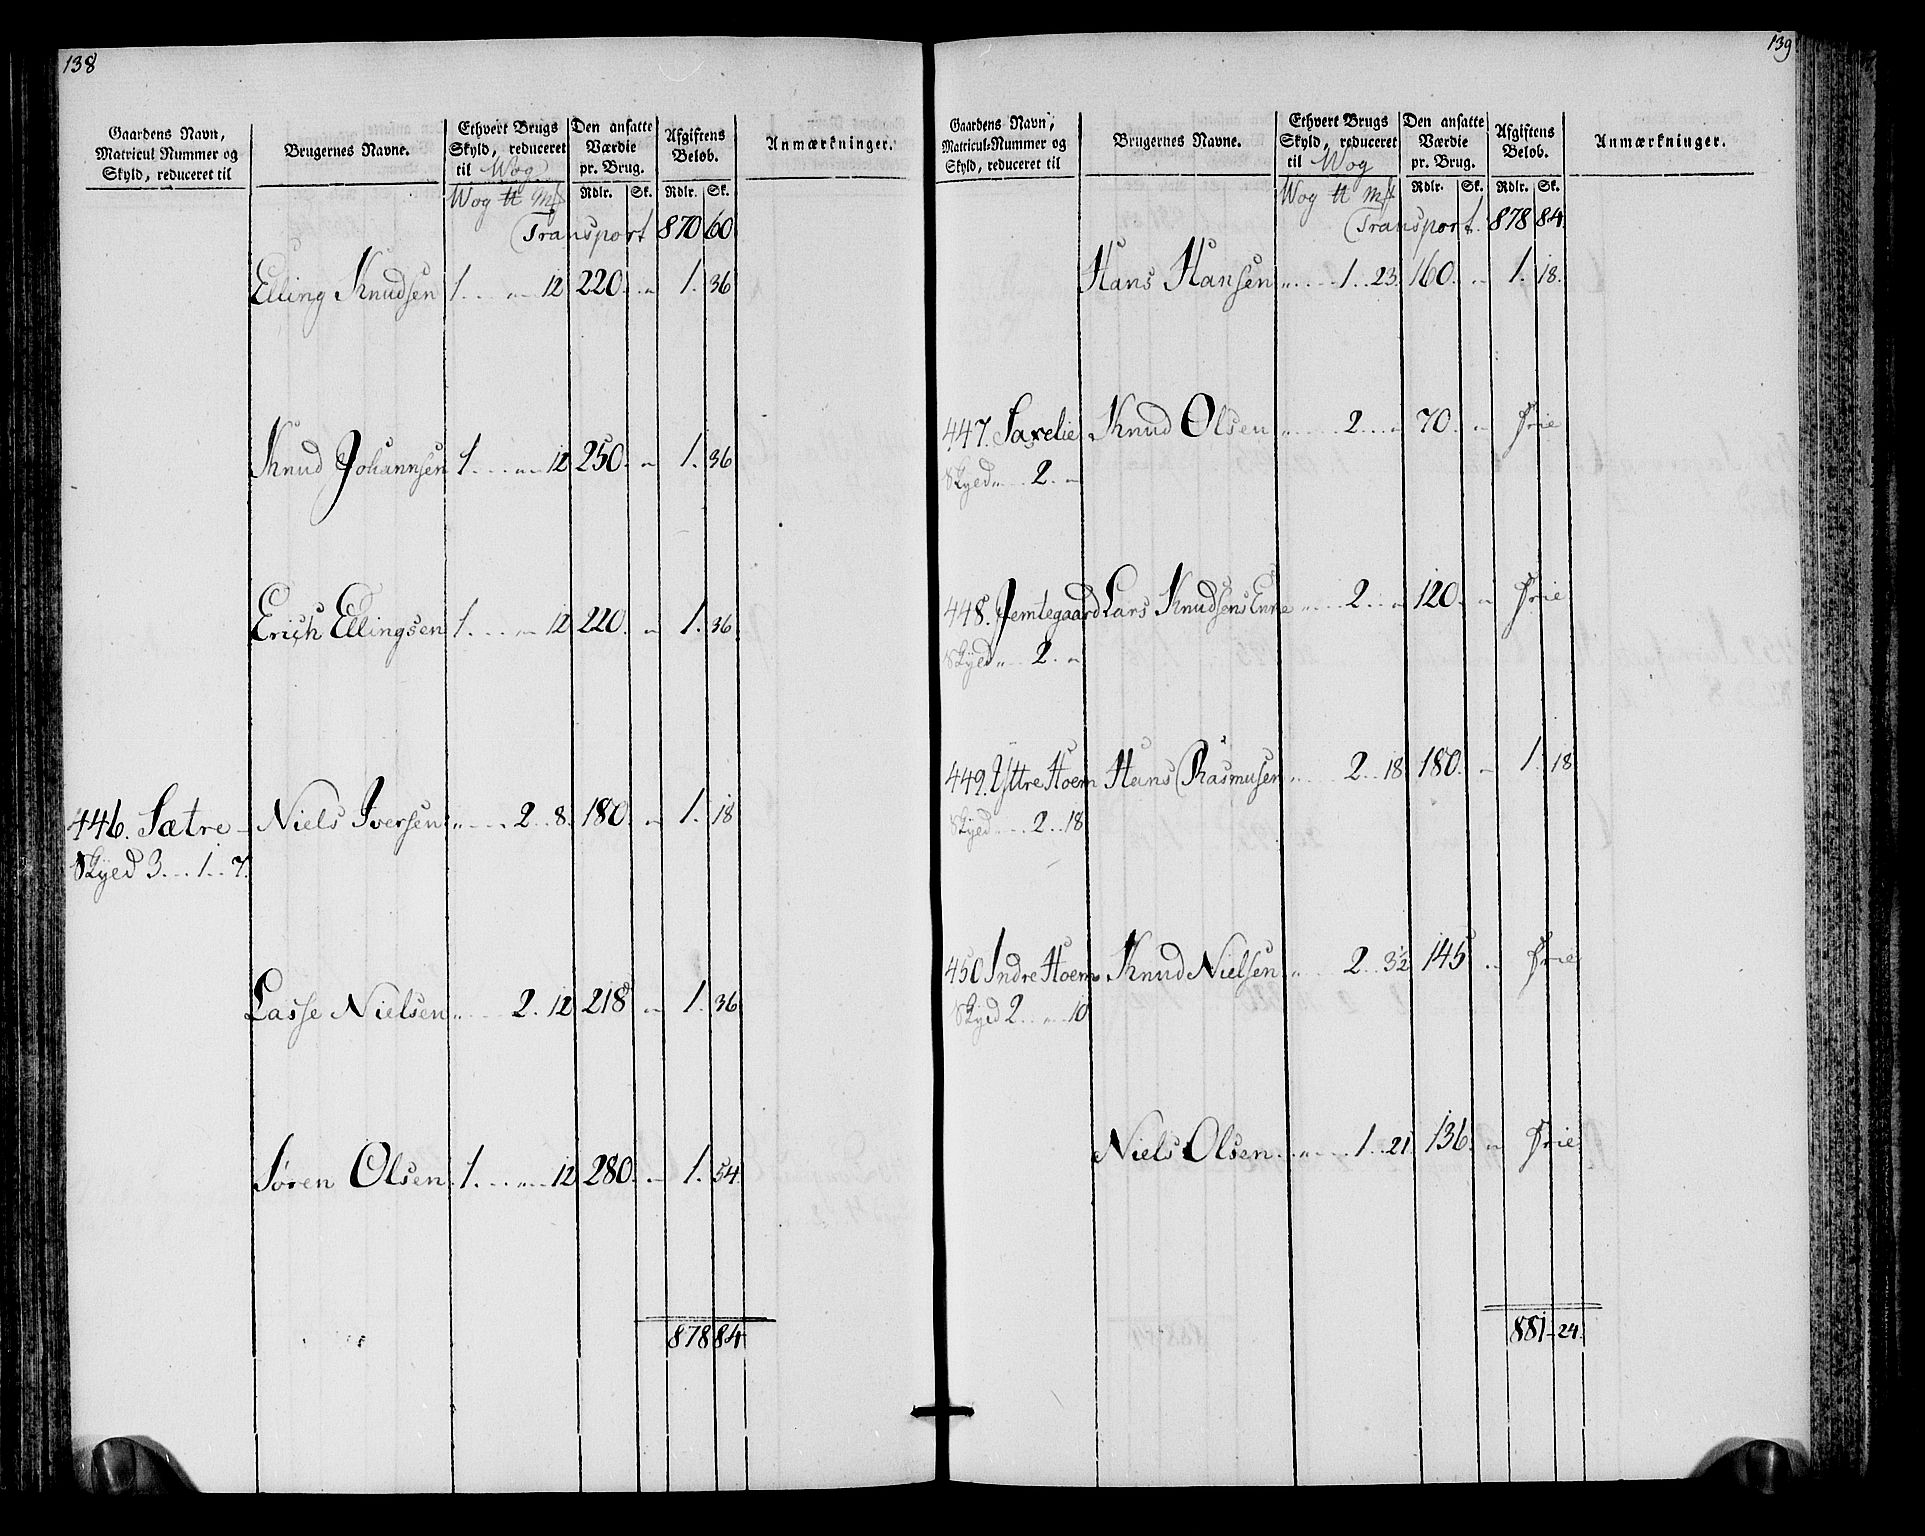 138
Gaardens Navn,
Matricul Nummer og
Skyld, reduceret til
Brugernes Navne.
Ethvert Brugs
Skyld, reduceret
til Wog
Den ansatte
Værdie
pr. Brug.
Afgiftens
Beløb.
Anmærkninger.
Wog ℔ Mk Rdlr. Sk. Rdlr. Sk.
Transport 870 60
Elling Knudsen 1 . . . „ . . 12 220. „ 1. 36
Knud Johannsen 1 . . . „ . . 12 250. „ 1. 36
Erich Ellingsen 1 . . . „ . . 12 220. „ 1. 36
446. Sætre Niels Iversen „ . . . 2 . . 8. 180. „ 1. 18
Skyed 3 . . . 1 . . 7.
Lasse Nielsen „ . . . 2. 12 218 „ 1. 36
Søren Olsen 1. . . . „ . . 12 280. „ 1. 54
878 84
139
Gaardens Navn,
Matricul-Nummer og
Skyld, reduceret til
Brugernes Navne.
Ethvert Brugs
Skyld, reduceret
til Wog
Den ansatte
Værdie
pr. Brug.
Afgiftens
Beløb.
Anmærkninger.
Wog ℔ Mk Rdlr. Sk. Rdlr. Sk.
Transport. 878 84.
Hans Hansen „ . . . 1 . . 23. 160. „ 1. 18.
447. Saxelie Knud Olsen „ . . . 2 . . „ 70. „ frie
Skyed „ . . 2. „
448. Jemtegaard Lars Knudsens Enke „ . . . 2 . . „ 120. „ frie
Skyed „ . . 2. „
449. Yttre Hoem Hans Rasmusen „ . . . 2 . . 18 180. „ 1. 18
Skyed . . . 2 . . 18
450 Indre Hoem Knud Nielsen „ . . . 2 . . 3½ 145 „ frie
Skyed 2 . . „ . . 10
Niels Olsen „ . . . 1 . . 21 136. „ frie
881 24.